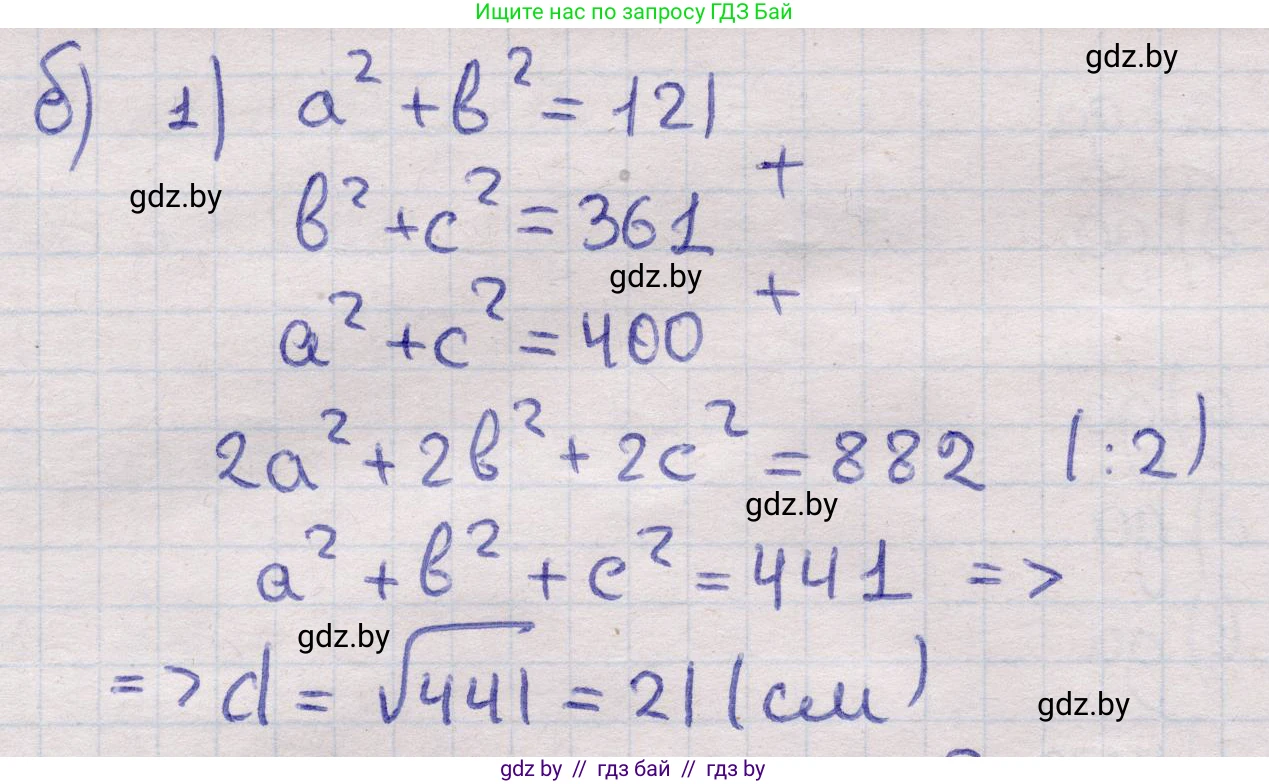 Ищите нас по запросу ГДЗ Бай
gdz.by
б) 1) a² + в² = 121
+
gdz.by
в² + c² = 361
gdz.by
+
a² + c² = 400
2a² + 2в² + 2c² = 882 (:2)
gdz.by
a² + в² + c² = 441 =>
gdz.by
=> d = √441 = 21 (см)
gdz.by
gdz by // гдз бай // гдз by